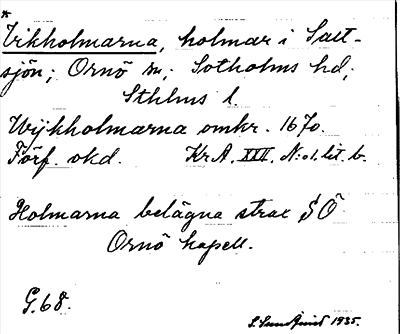 *
Vikholmarna, holmar i Salt-
sjön; Ornö sn; Sotholms hd;
Sthlms l.
Wijkholmarna omkr. 1670.
Förf. okd. Kr A. XXII. N:o1. lit. b.
Holmarna belägna strax SÖ
Ornö kapell.
G.68.
S. Sundqvist 1935.